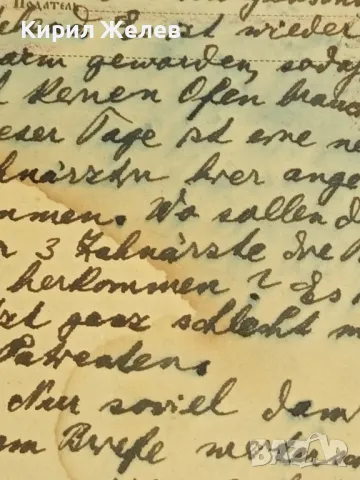 Кирил Желев
Податель
jetzt wieder
warm geworden, sodaß
keinen Ofen brauch
dieser Tage ist eine ne
ahnärztin hier ange
ommen. Wo sollen d
r 3 Zahnärzte die P
herkommen? Es
tzt ganz schlecht m
Patienten.
Nur soviel dam
m Briefe weiters
bazar